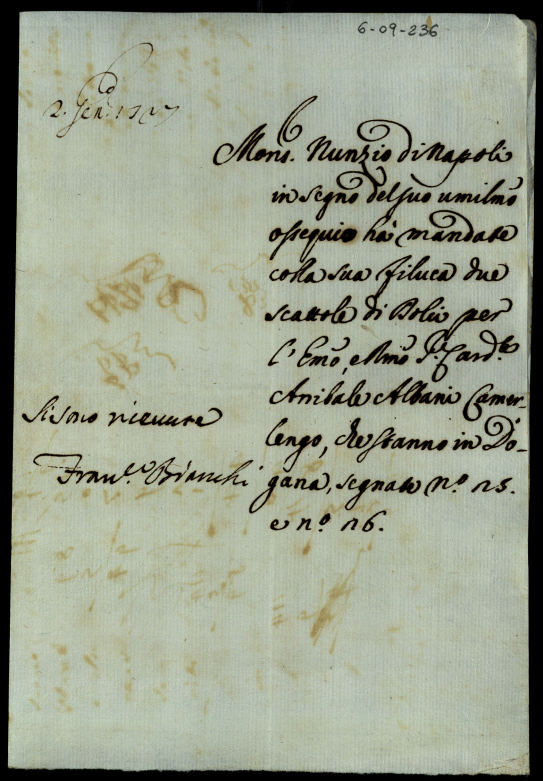 6-09-236
2. Gen.º 1727
Mons. Nunzio di Napoli
in segno del suo umilmō
ossequio hà mandate
colla sua filuca due
scattole di Bolii per
l'Emō, e Rmō Sʳ. Card.ˡᵉ
Annibale Albani Camer-
lengo, che stanno in Do-
gana, segnate nº. 25.
e nº. 26.
Si sono riceuute
Fran.ᶜᵒ Bianchi